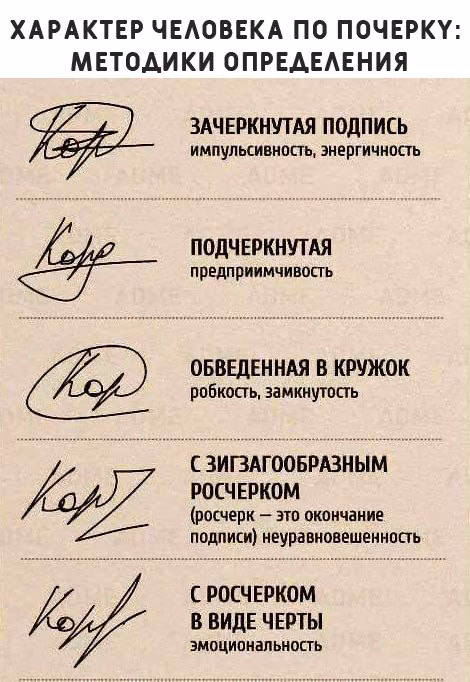 ХАРАКТЕР ЧЕЛОВЕКА ПО ПОЧЕРКУ:
МЕТОДИКИ ОПРЕДЕЛЕНИЯ
Кор
ЗАЧЕРКНУТАЯ ПОДПИСЬ
импульсивность, энергичность
Кор
ПОДЧЕРКНУТАЯ
предприимчивость
Кор
ОБВЕДЕННАЯ В КРУЖОК
робкость, замкнутость
Кор
С ЗИГЗАГООБРАЗНЫМ
РОСЧЕРКОМ
(росчерк – это окончание
подписи) неуравновешенность
Кор
С РОСЧЕРКОМ
В ВИДЕ ЧЕРТЫ
эмоциональность